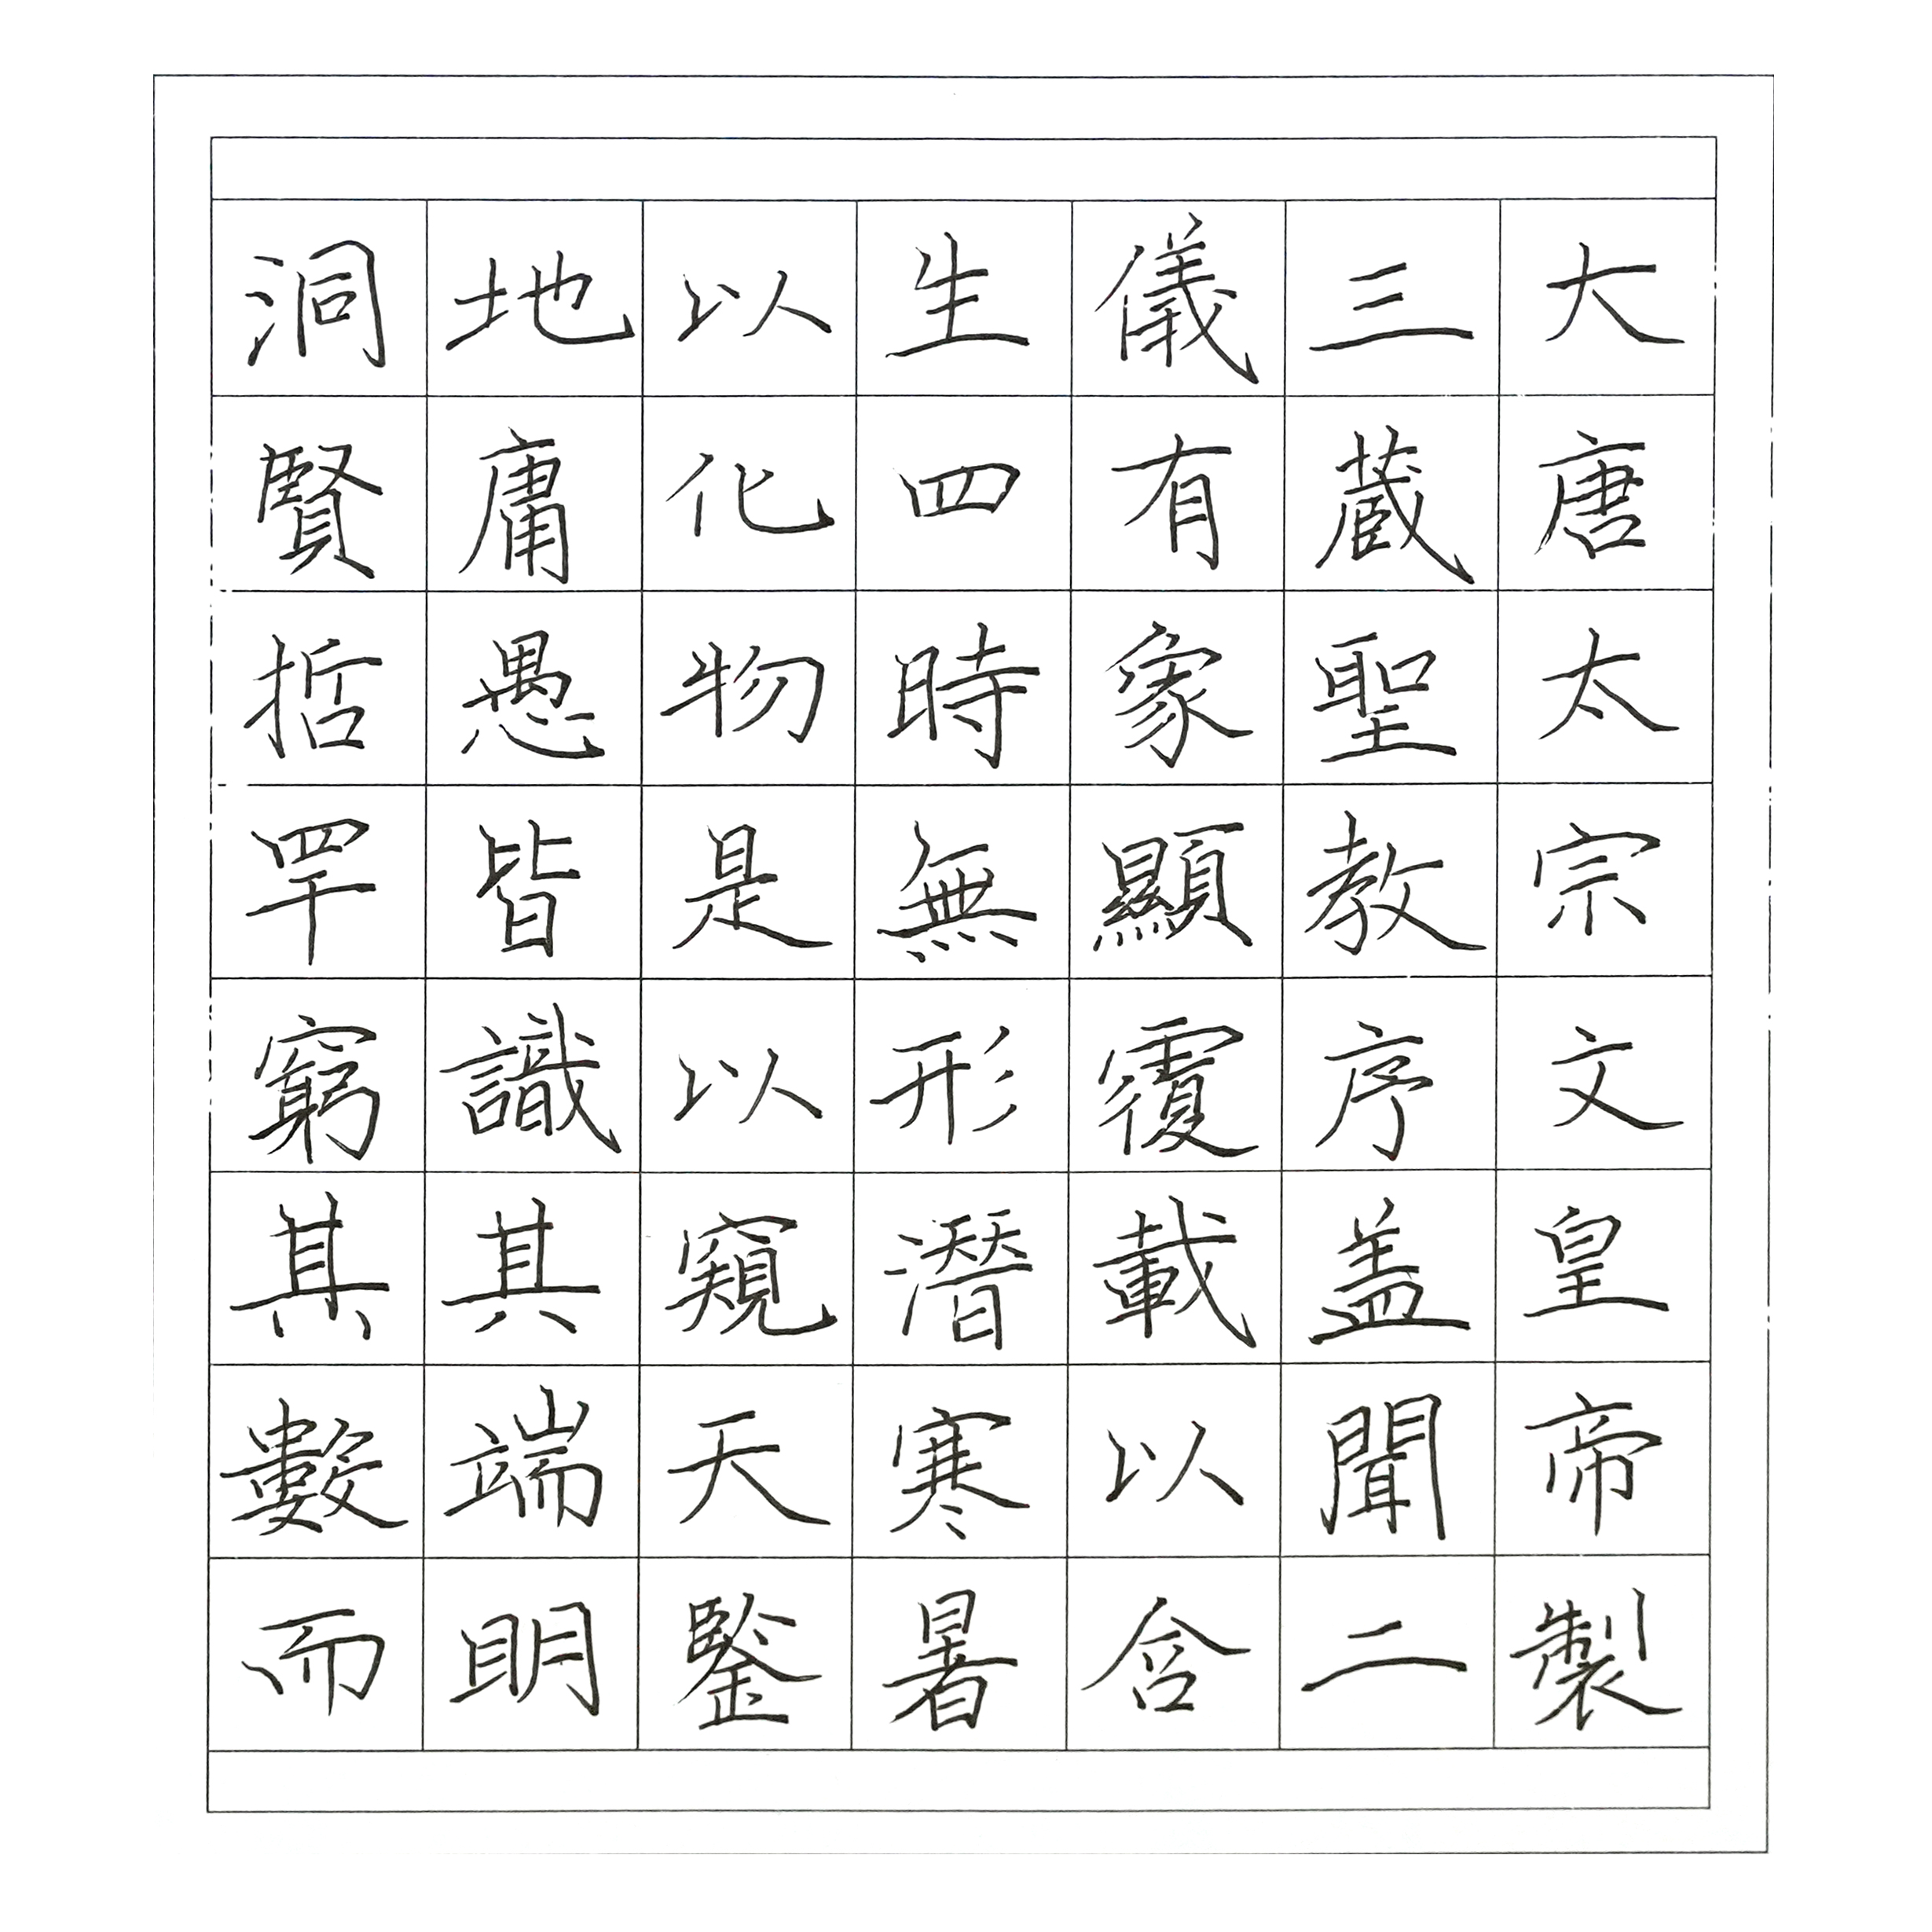 大唐太宗文皇帝製
三蔵聖教序盖聞二
儀有象顯覆載以含
生四時無形潛寒暑
以化物是以窺天鑒
地庸愚皆識其端明
洞賢哲罕窮其數而